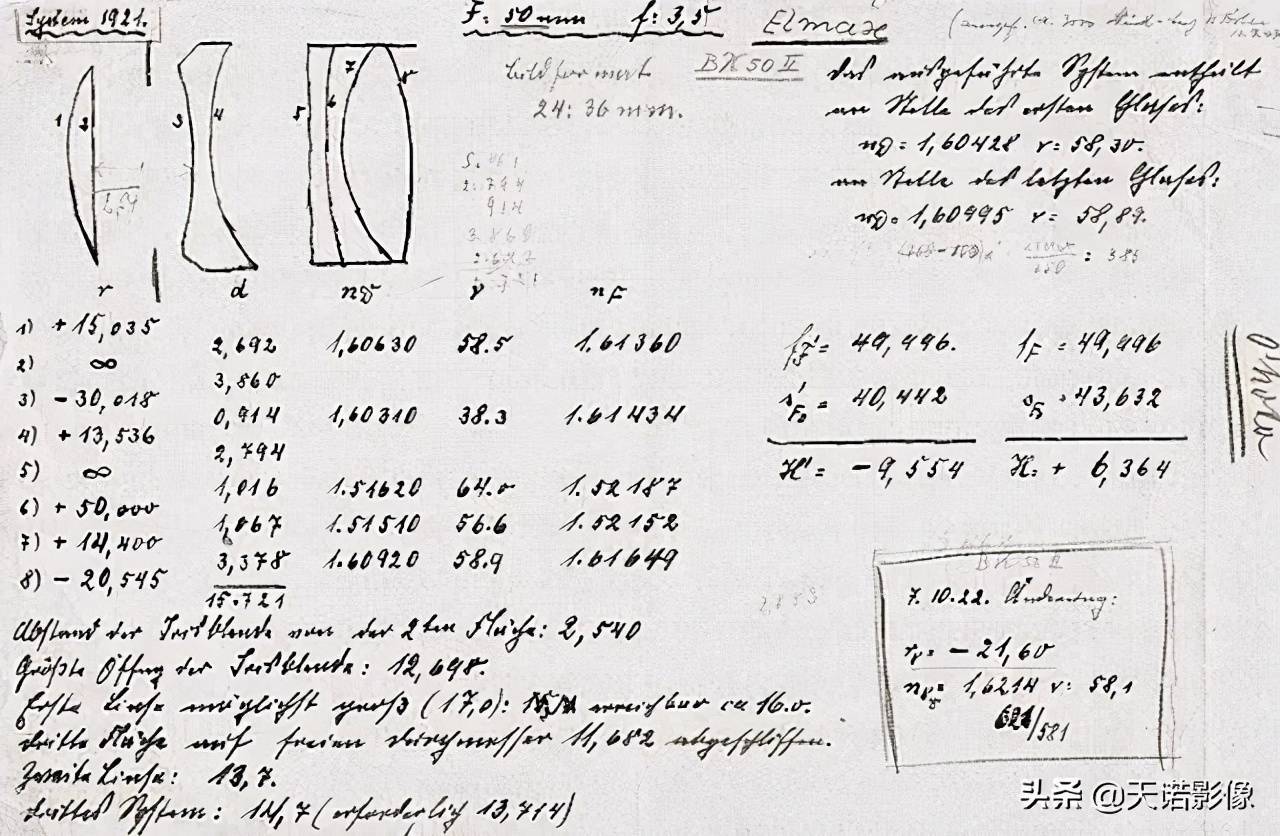 System 1921.
F= 50 mm f: 3,5
Elmax
Bildformat
24: 36 mm.
BK 50 II
Das ausgeführte System enthält
an Stelle des ersten Glases:
nD= 1,60428 ν= 58,30.
an Stelle des letzten Glases:
nD= 1,60995 ν= 58,89.
1 2 3 4 5 6 7 8
r d nD ν nF
1) + 15,035
2,692 1,60630 58.5 1.61360
2) ∞
3,860
3) - 30,018
0,914 1,60310 38.3 1.61434
4) + 13,536
2,794
5) ∞
1,016 1.51620 64.0 1.52187
6) + 50,000
1,067 1.51510 56.6 1.52152
7) + 14,400
3,378 1.60920 58.9 1.61649
8) - 20,545
15.721
f'F= 49,996. fF = 49,996
s'F= 40,442 sF= 43,632
H'= -9,554 H= + 6,364
Photo
Abstand der Irisblende von der 2ten Fläche: 2,540
Größte Öffng der Irisblende: 12,698.
Erste Linse möglichst groß (17,0): erreichbar ca 16.0.
Dritte Fläche auf freien Durchmesser 11,682 abgeschliffen.
Zweite Linse: 13,7.
Drittes System: 14,7 (erforderlich 13,714)
BK 50 II
7.10.22. Änderung:
r8= -21,60
nD8= 1,6214 ν: 58,1
621/581
头条 @天诺影像